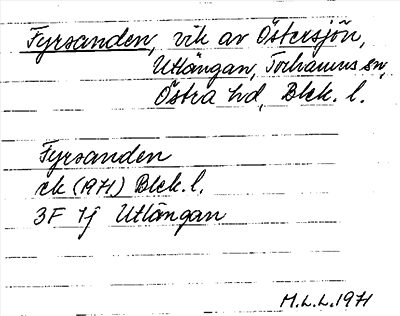 Fyrsanden, vik av Östersjön,
Utlängan, Torhamns sn,
Östra hd, Blek. l.
Fyrsanden
ek (1971) Blek. l.
3F 7j Utlängan
M.L.L. 1971